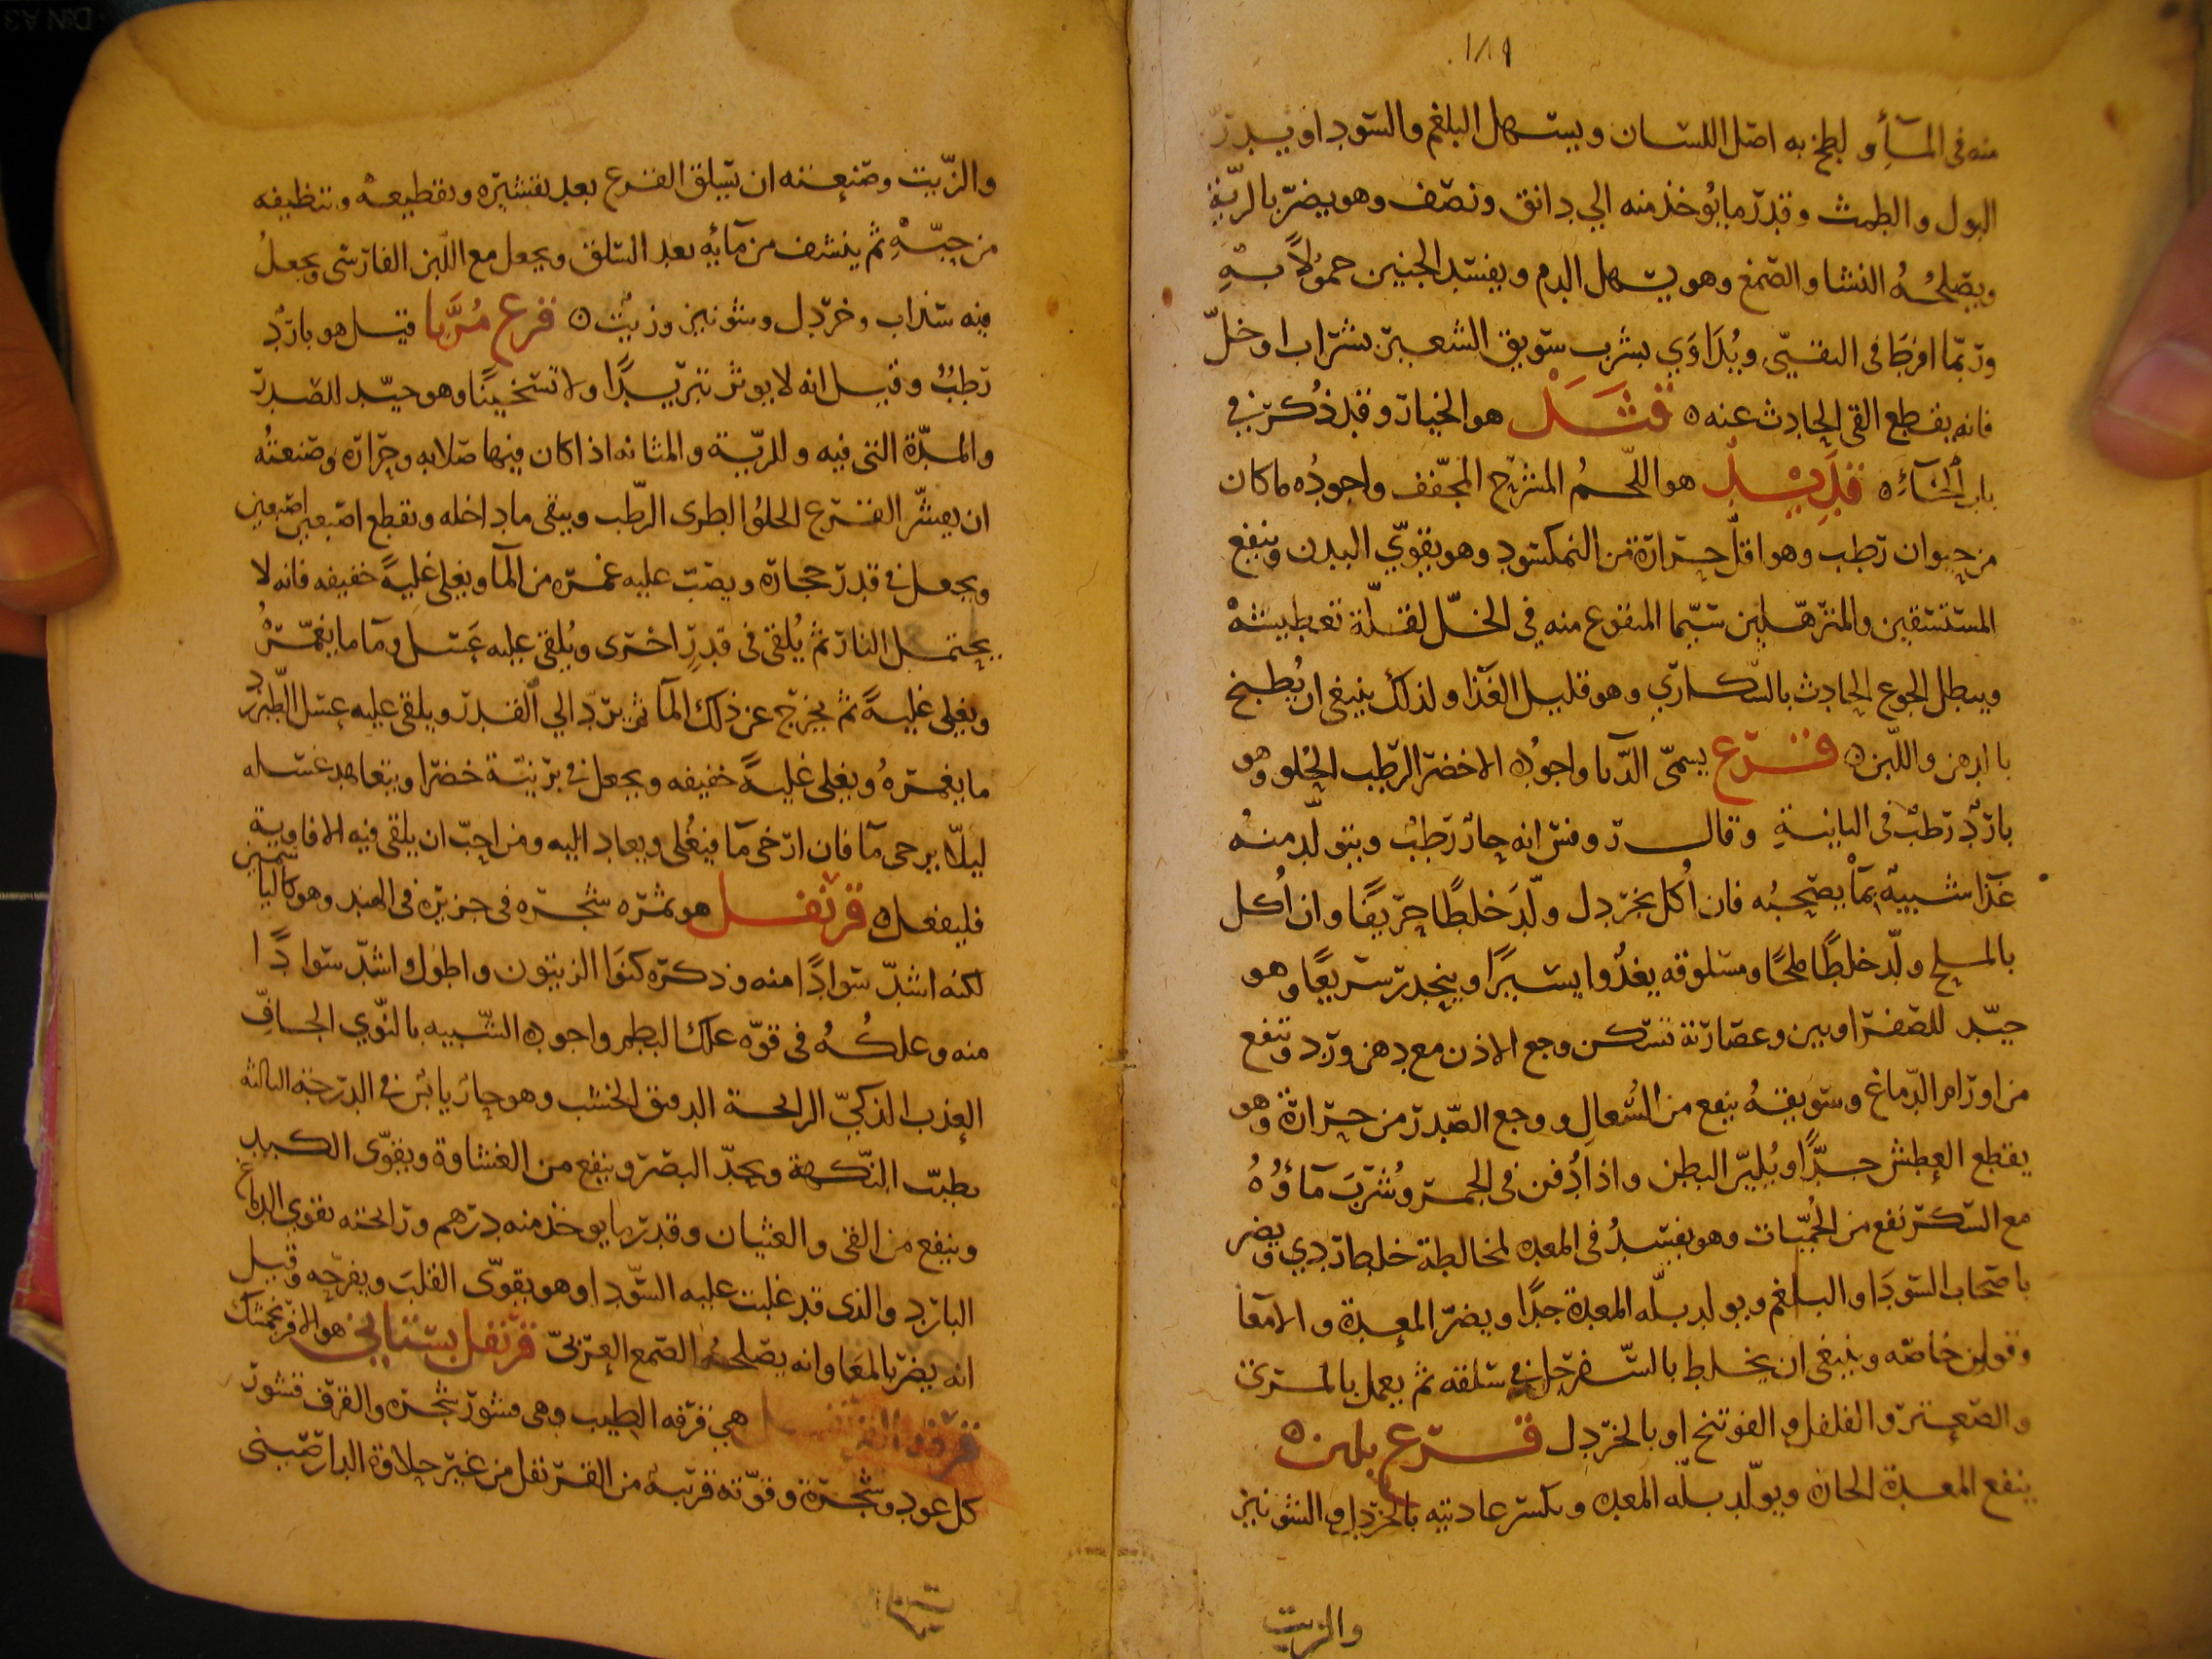 ١٨٩
منه فى المسآء ولطخ به اصل اللسان ويسهل البلغم والسودا ويدرّ
البول والطمث وقدر ما يُوخذ منه الي دانق ونصف وهو يضرّ بالريّة
ويصلحُهُ النشا والصمغ وهو يسهل الدم ويفسد الجنين حمولاً به
وربّما افرط فى القيّء ويُدَاوَي بشرب سويق الشعير بشراب او خلّ
فانه يقطع القى الحادث عنه ٥ قَثَد هو الخيار وقد ذُكر في
باب الخآء ٥ قَدِيْد هو اللّحمُ المشرّح المجفّف واجودُه ما كان
من حيوان رطب وهو اقلّ حرارة من النمكسود وهو يقوّي البدن وينفع
المستسقين والمترهّلين سيّما المنقوع منه في الخلّ لقلّة تعطيشهْ
ويبطل الجوع الحادث بالسّكاري وهو قليل الغذا ولذلك ينبغى ان يُطبخ
با الدهن واللّبن ٥ قرع يسمّى الدّبا واجودُه الاخضر الرطب الحُلو وهو
باردٌ رطبٌ فى الثانية وقال روفس انه حار رطبٌ ويتولّد منه
غذا شبيه بمَا يصحبُه فان اُكل بخردل ولّدَ خلطًا حرّيفًا وان اُكل
بالملح ولّد خلطًا ملحًا ومسلوقه يغذُوا يسيرًا وينحدر سريعًا وهو
جيّد للصفراويين وعصارته تسكن وجع الاذن مع دهن ورد وتنفع
من اورام الدّماغ وسويقهُ ينفع من السُّعال ووجع الصّدر من حرارة وهو
يقطع العطش جدًّا ويُليّن البطن واذا دُفن فى الجمر وشُرِبَ مآؤُهُ
مع السكر نفع من الحُمّيات وهو يفسدُ فى المعده لمخالطة خلط ردي ويضر
باصحاب السّودَا والبلغم ويولد بلّه المعدة جدًا ويضرّ المعدة والامعا
وقولن خاصّه وينبغى ان يخلط بالسّفرجل في سلقه ثم يعمل بالمرى
والصعتر والفلفل والفوتنج او بالخردل قرع بلبن ٥
ينفع المعدة الحارة ويولّد بلّه المعده وتكسر عاديته بالخردل والشونيز
والزيت
والزّيت وصنعته ان يسلق القرع بعد تقشيره وتقطيعه وتنظيفه
من حبّهِ ثم ينشف من مآئيه بعد السّلق ويجعل مع اللّبن الفارسّى ويجعلُ
فيه سذاب وخردل وشونيز وزيت ٥ قرع مُرَبّا قيل هو باردٌ
رطبٌ وقيل انه لا يوثر تبريدًا ولا تسخينًا وهو جيّد للصدر
والمدّة التى فيه وللريّة والمثانه اذا كان فيها صلابه وحرارة وصنعتُه
ان يقشّر القرع الحلوُ الطرى الرّطب وينقى ما داخله وتقطع اصبعين اصبعين
ويجعل في قدر حجاره ويصبّ عليه غمره من المآ ويغلى غليةً خفيفه فانه لا
يحتمل النار ثم يُلقى فى قدرٍ اخرى ويُلقى عليه عَسل ومآ ما يغمّرهُ
ويغلى غليةً ثم يخرج عن ذلك المآ ثم يردّ الي القدر ويلقى عليه عسل الطّبرزد
ما يغمرهُ ويغلى غليةً خفيفه ويجعل في برنيّة خضرا ويتعاهد غسله
ليلّا يرخى مآ فان ارخى مآ فيغُلى ويعاد اليه ومن احبّ ان يلقى فيه الافاوية
فليفعل ٥ قرنفل هو ثمره شجره فى جزيره فى الهند وهو كالياسمين
لكنه اشدّ سوادًا منه وذكره كنوَا الزيتون واطول واشدّ سوادًا
منه وعلكُهُ فى قوّه علك البطم واجوده الشّبيه بالنّوي الجافّ
العذب الذكيّ الرايحة الدمق الخشب وهو حار يابس في الدرجة الثالثه
يطيبّ النّكهة ويحدّ البصر وينفع من الغشاوة ويقوّى الكبد
وينفع من القى والغثيان وقدر ما يوخذ منه درهم ورايحته تقوي الدماغ
البارد والذى قد غلبت عليه السّودا وهو يقوّى القلبَ ويفرحه وقيل
انه يضر بالمعَا وانه يصلحهُ الصمغ العربىّ قرنفل بستانى هو الافرنجمشك
قرفه القرنفل هي قرفه الطيب وهى قشور شجره والقرف قشور
كل عود وشجرة وقوّته قريبة من القرنفل من غير حلاوة الدارصينى